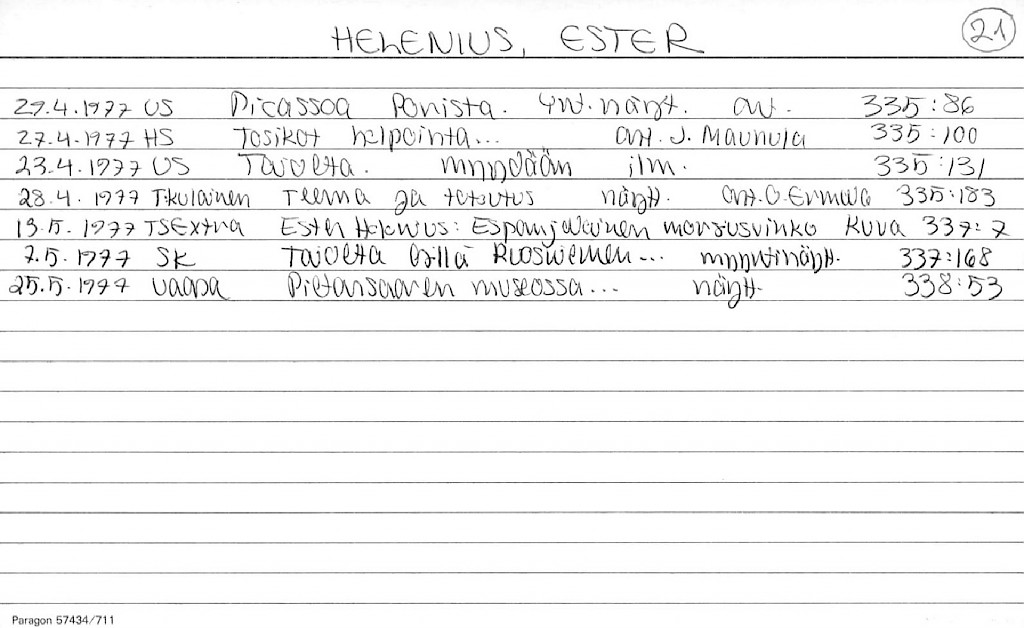 HELENIUS, ESTER 21
27.4.1977 US Picassoa Porista. Yht.näyt. arv. 335:86
27.4.1977 HS Tosikot helpointa... arv. J. Maunula 335:100
23.4.1977 US Taidetta. myydään ilm. 335:131
28.4.1977 T-kulainen Teema ja toteutus näytt. arv. O. Ermala 335:183
13.5.1977 TSExtra Ester Helenius: Espanjalainen morsiushuivi Kuva 337:7
7.5.1977 SK Taidetta myyntinäytt. 337:168
25.5.1977 Vaasa Pietarsaaren museossa... näytt. 338:53
Paragon 57434/711